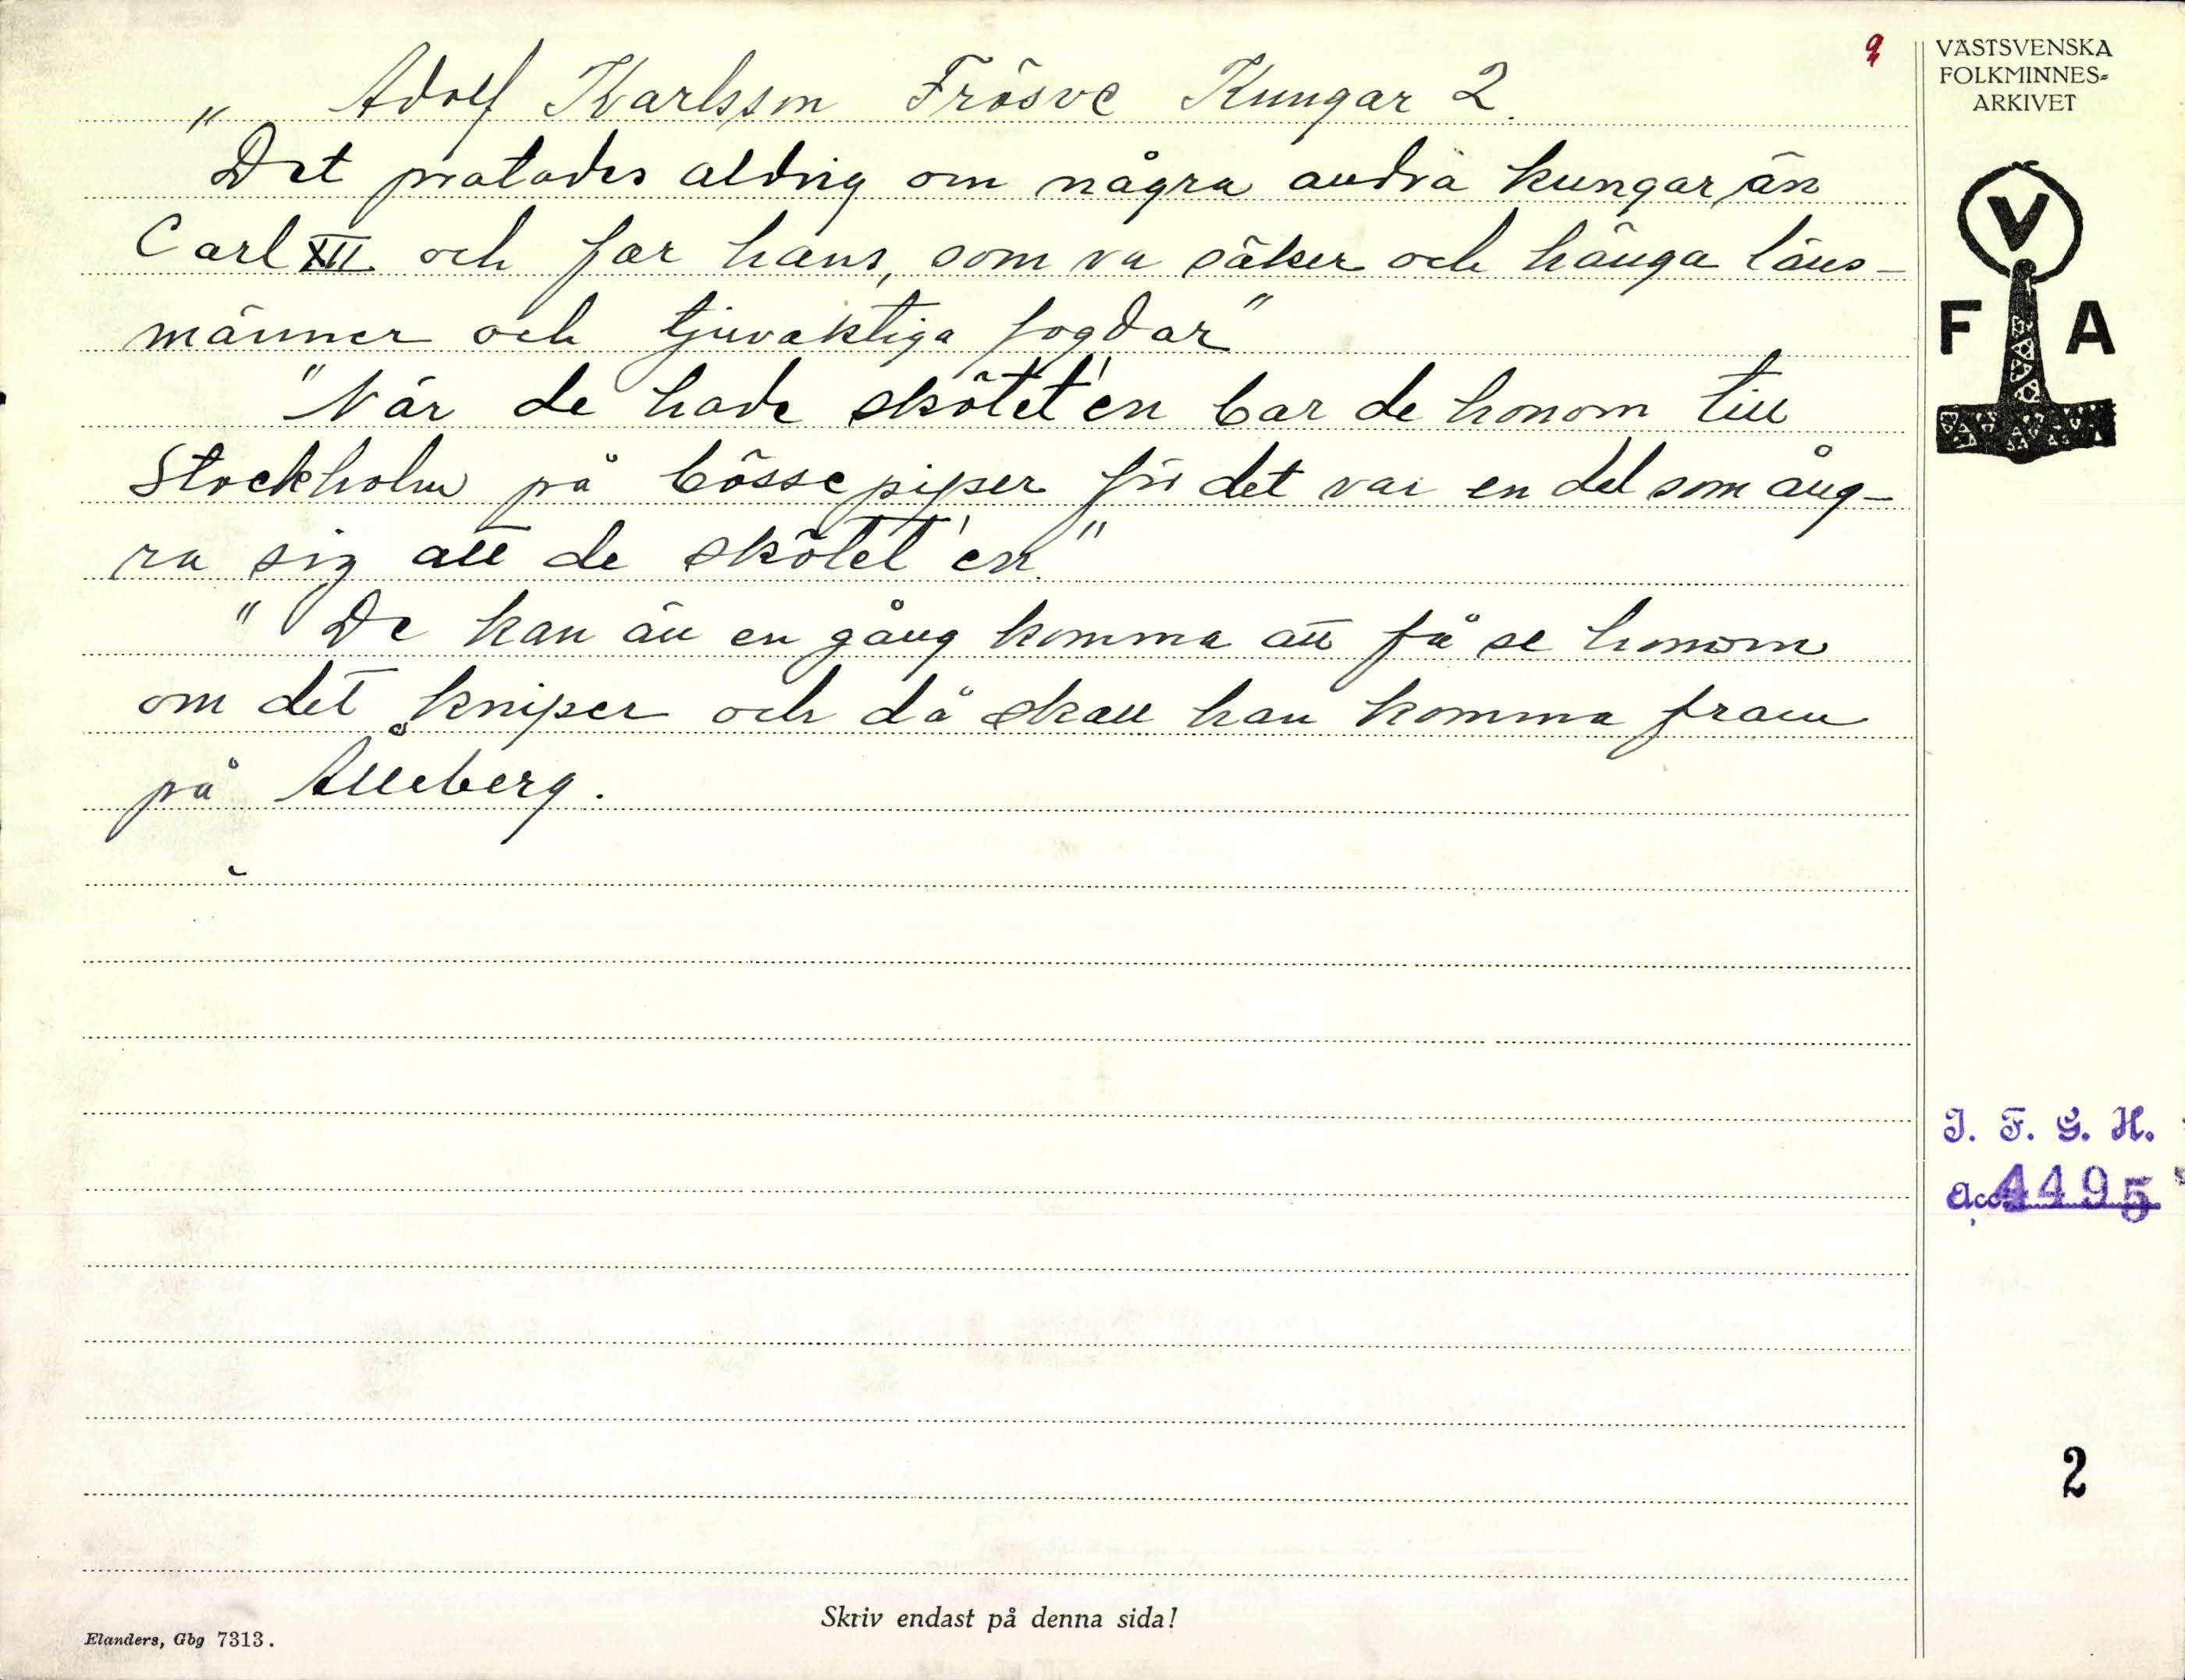 Adolf Karlsson Frösve Kungar 2.
"Det pratades aldrig om några andra kungar än
Carl XII och far hans, som va säker och hänga läns-
männer och tjuvaktiga fogdar"
"När de hade skötet'en bar de honom till
Stockholm på bössepiper för det var en del som ång-
ra sig att de skötet'en."
"De kan än en gång komma att få se honom
om det kniper och då skall han komma fram
på Ålleberg.
Skriv endast på denna sida!
Elanders, Gbg 7313.
VÄSTSVENSKA
FOLKMINNES-
ARKIVET
V
F A
I. F. G. H.
Acc. 4495
2